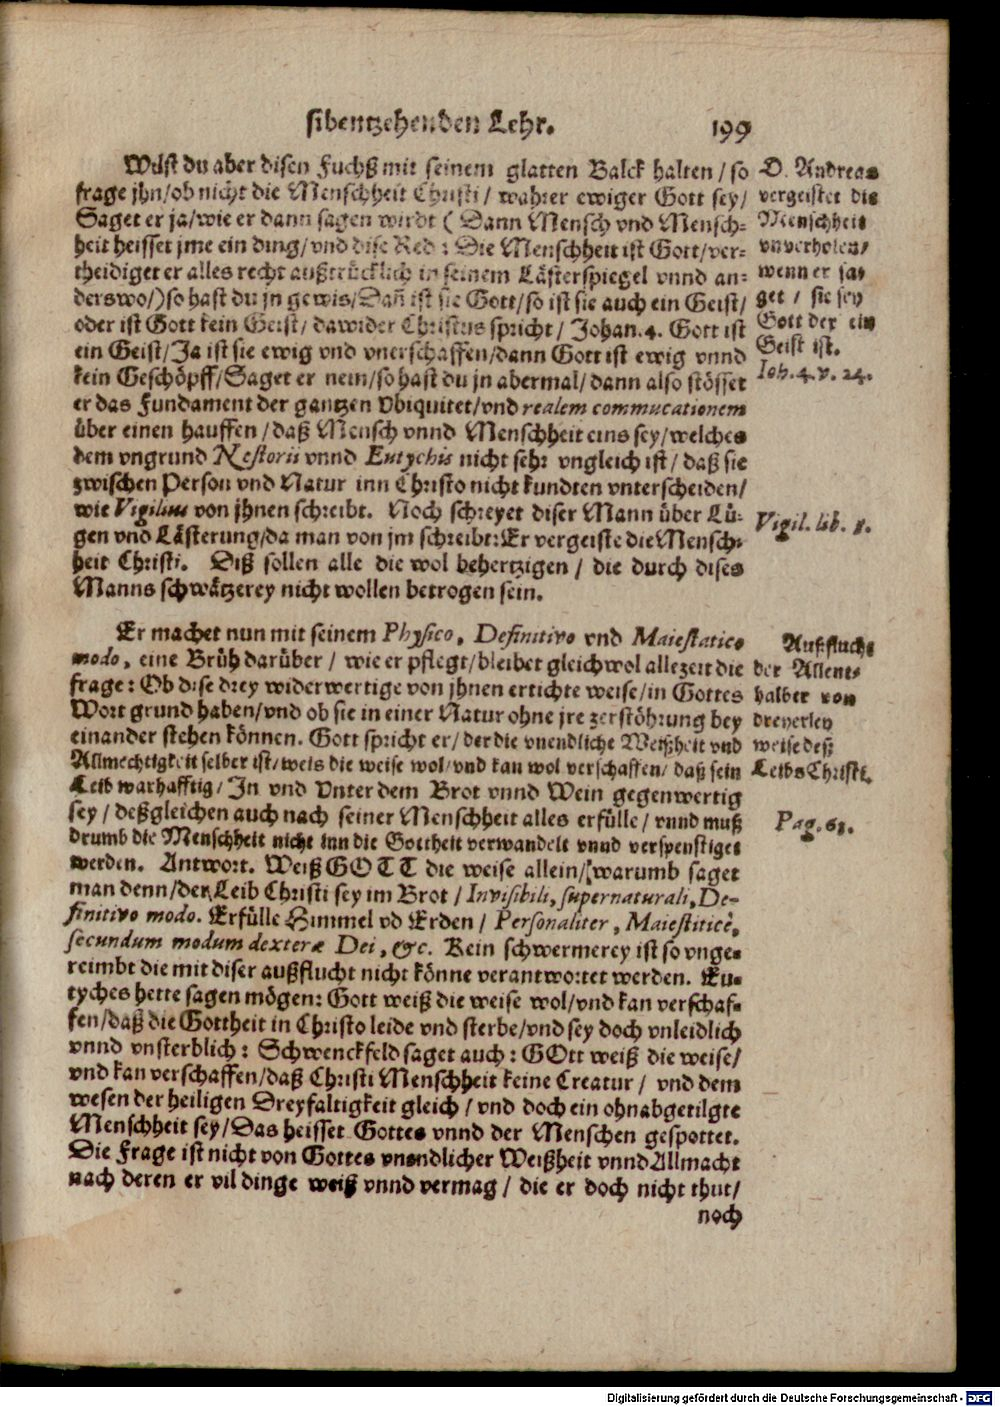 sibentzehenden Lehr. 199
Wilst du aber disen Fuchß mit seinem glatten Balck halten / so
frage jhn / ob nicht die Menschheit Christi / wahrer ewiger Gott sey /
Saget er ja / wie er dann sagen wirdt ( Dann Mensch vnd Mensch-
heit heisset jme ein ding / vnd dise Red : Die Menschheit ist Gott / ver-
theidiget er alles recht außtrücklich in seinem Lästerspiegel vnnd an-
derswo /) so hast du jn gewis / Dañ ist sie Gott / so ist sie auch ein Geist /
oder ist Gott kein Geist / dawider Christus spricht / Johan. 4. Gott ist
ein Geist / Ja ist sie ewig vnd vnerschaffen / dann Gott ist ewig vnnd
kein Geschöpff / Saget er nein / so hast du jn abermal / dann also stösset
er das Fundament der gantzen Vbiquitet / vnd realem commucationem
über einen hauffen / daß Mensch vnnd Menschheit eins sey / welches
dem vngrund Nestorii vnnd Eutychis nicht sehr vngleich ist / daß sie
zwischen Person vnd Natur inn Christo nicht kundten vnterscheiden /
wie Vigilius von jhnen schreibt. Noch schreyet diser Mann über Lü-
gen vnd Lästerung / da man von jm schreibt: Er vergeiste die Mensch-
heit Christi. Diß sollen alle die wol behertzigen / die durch dises
Manns schwätzerey nicht wollen betrogen sein.
D. Andreas
vergeistet die
Menschheit
vnverholen /
wenn er sa-
get / sie sey
Gott der ein
Geist ist.
Ioh. 4. v. 24.
Vigil. lib. 1.
Er machet nun mit seinem Physico, Definitivo vnd Maiestatico
modo, eine Brüh darüber / wie er pflegt / bleibet gleichwol allezeit die
frage : Ob dise drey widerwertige von jhnen ertichte weise / in Gottes
Wort grund haben / vnd ob sie in einer Natur ohne jre zerstöhrung bey
einander stehen können. Gott spricht er / der die vnendliche Weißheit vnd
Allmechtigkeit selber ist / weis die weise wol / vnd kan wol verschaffen / daß sein
Leib warhafftig / In vnd Vnter dem Brot vnnd Wein gegenwertig
sey / deßgleichen auch nach seiner Menschheit alles erfülle / vnnd muß
drumb die Menschheit nicht inn die Gottheit verwandelt vnnd verspenstiget
werden. Antwort. Weiß GOTT die weise allein / warumb saget
man denn / der Leib Christi sey im Brot / Invisibili, supernaturali, De-
finitivo modo. Erfülle Himmel vd Erden / Personaliter, Maiestiticè,
secundum modum dexteræ Dei, &c. Kein schwermerey ist so vnge-
reimbt die mit diser außflucht nicht könne verantwortet werden. Eu-
tyches hette sagen mögen: Gott weiß die weise wol / vnd kan verschaf-
fen / daß die Gottheit in Christo leide vnd sterbe / vnd sey doch vnleidlich
vnnd vnsterblich : Schwenckfeld saget auch : GOtt weiß die weise /
vnd kan verschaffen / daß Christi Menschheit keine Creatur / vnd dem
wesen der heiligen Dreyfaltigkeit gleich / vnd doch ein ohnabgetilgte
Menschheit sey / Das heisset Gottes vnnd der Menschen gespottet.
Die Frage ist nicht von Gottes vnendlicher Weißheit vnnd Allmacht
nach deren er vil dinge weiß vnnd vermag / die er doch nicht thut /
noch
Außflucht
der Allent-
halber von
dreyerley
weise deß
Leibs Christi.
Pag. 61.
Digitalisierung gefördert durch die Deutsche Forschungsgemeinschaft - DFG